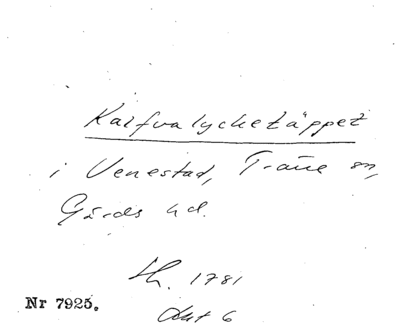 Kalfvalycketäppet
i Venestad, Träne sn,
Gärds hd.
Sk. 1781
Akt 6
Nr 7925.